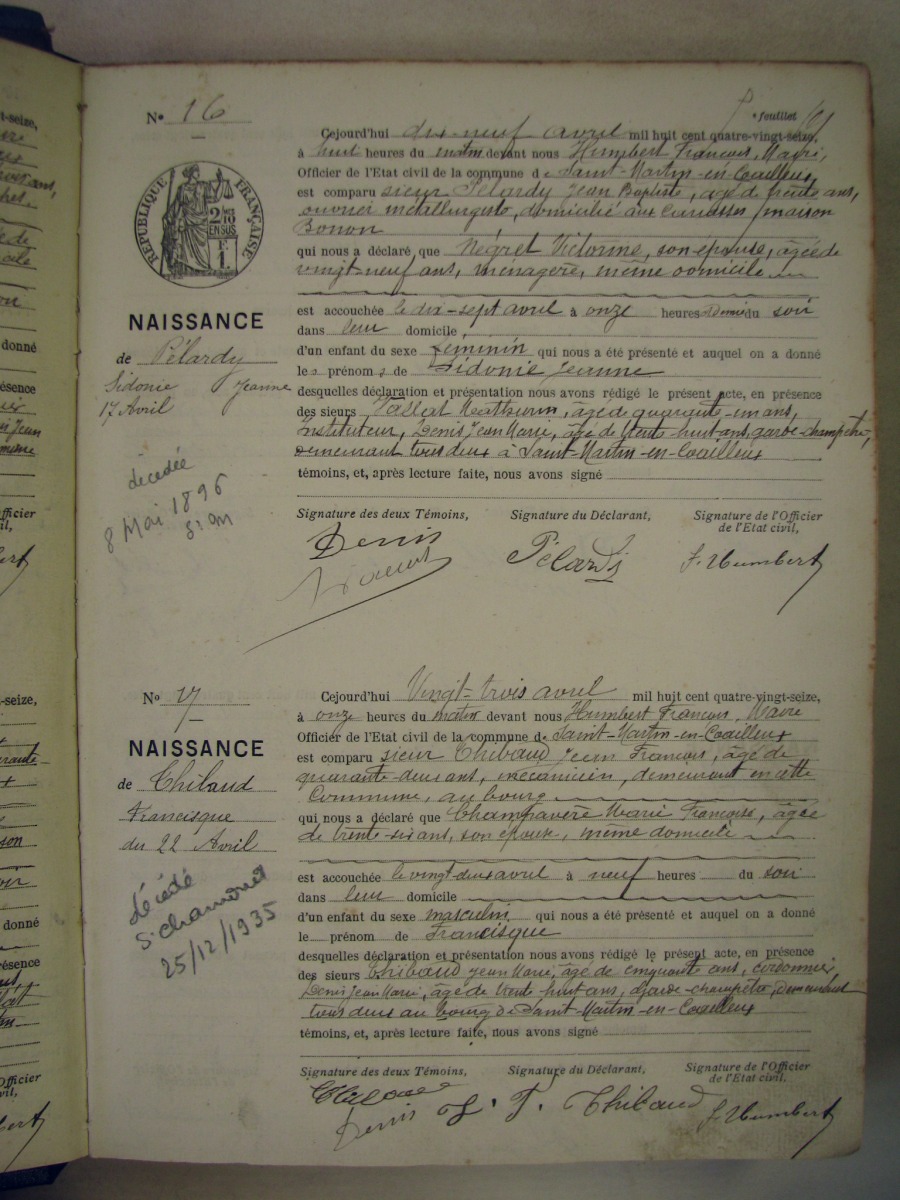 N° 16
feuillet
Cejourd'hui dix-neuf avril mil huit cent quatre-vingt-seize,
à huit heures du matin devant nous Humbert François, Maire,
Officier de l'Etat civil de la commune de Saint-Martin-en-Coailleux
est comparu sieur Pélardy Jean Baptiste, agé de trente ans,
ouvrier métallurgiste, domicilié aux maison
qui nous a déclaré que Négret Victorine, son épouse, agée de
vingt-neuf ans, ménagère, même domicile
est accouchée le dix-sept avril à onze heures Demi du soir
dans leur domicile
d'un enfant du sexe féminin qui nous a été présenté et auquel on a donné
les prénoms de Sidonie Jeanne
desquelles déclaration et présentation nous avons rédigé le présent acte, en présence
des sieurs Mathurin, âgé de quarante-un ans,
Instituteur, Denis Jean Marie, âgé de trente-huit ans, garde-champêtre,
demeurant tous deux à Saint-Martin-en-Coailleux
témoins, et, après lecture faite, nous avons signé
Signature des deux Témoins,
Signature du Déclarant,
Signature de l'Officier
de l'Etat civil,
Denis
Pélardy
f. Humbert
RÉPUBLIQUE FRANÇAISE
2/10 EN SUS
F. 1.
NAISSANCE
de Pélardy
Sidonie Jeanne
17 Avril
décédée
8 Mai 1896
N° 17
NAISSANCE
de Thibaud
Francisque
du 22 Avril
décédé
St chamond
25/12/1935
Cejourd'hui Vingt-trois avril mil huit cent quatre-vingt-seize,
à onze heures du matin devant nous Humbert François, Maire
Officier de l'Etat civil de la commune de Saint-Martin-en-Coailleux
est comparu sieur Thibaud Jean François, âgé de
quarante-deux ans, mécanicien, demeurant en cette
Commune, au bourg
qui nous a déclaré que Champavère Marie Françoise, âgée
de trente-six ans, son épouse, même domicile
est accouchée le vingt-deux avril à neuf heures du soir
dans leur domicile
d'un enfant du sexe masculin qui nous a été présenté et auquel on a donné
le prénom de Francisque
desquelles déclaration et présentation nous avons rédigé le présent acte, en présence
des sieurs Thibaud Jean Marie, âgé de cinquante ans, cordonnier,
Denis Jean Marie, âgé de trente-huit ans, garde-champêtre, demeurant
tous deux au bourg de Saint-Martin-en-Coailleux
témoins, et, après lecture faite, nous avons signé
Signature des deux Témoins,
Signature du Déclarant,
Signature de l'Officier
de l'Etat civil,
Denis
J. F. Thibaud
f. Humbert